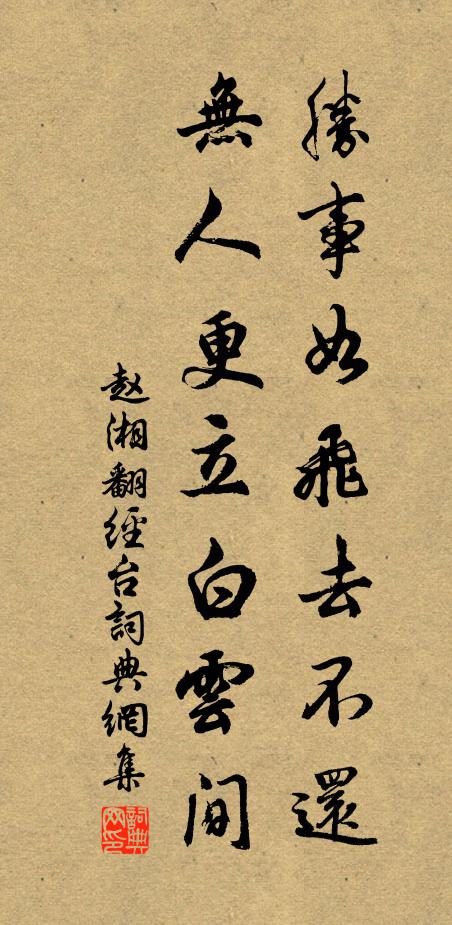 勝事如飛去不還
無人更立白雲間
赵湘翻經台詞典網集
詞典网印